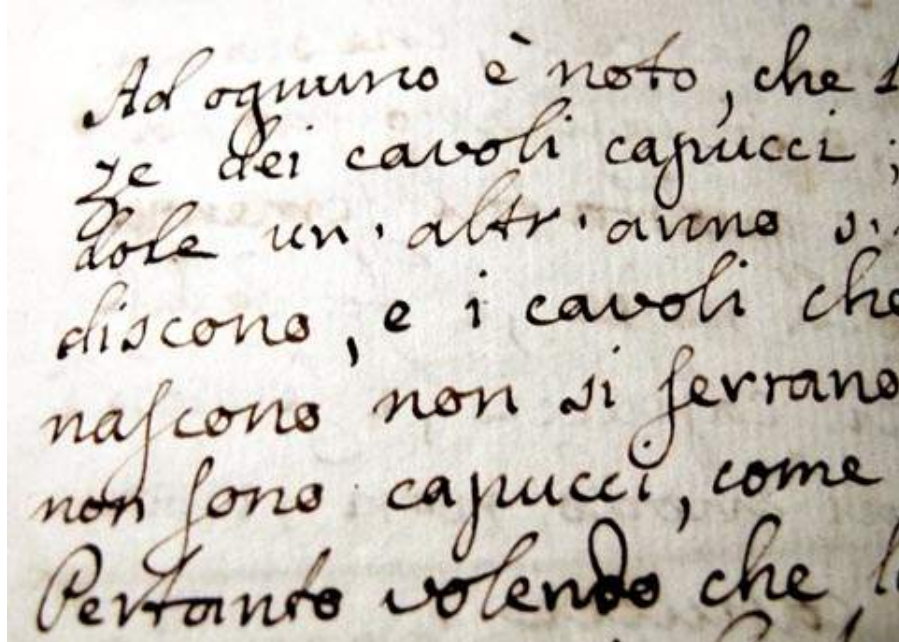 Ad ognuno è noto, che
ze dei cavoli capucci ;
dole un' altr' anno
discono, e i cavoli che
naſcono non si ſerrano
non ſono capucci, come
Pertanto volendo che